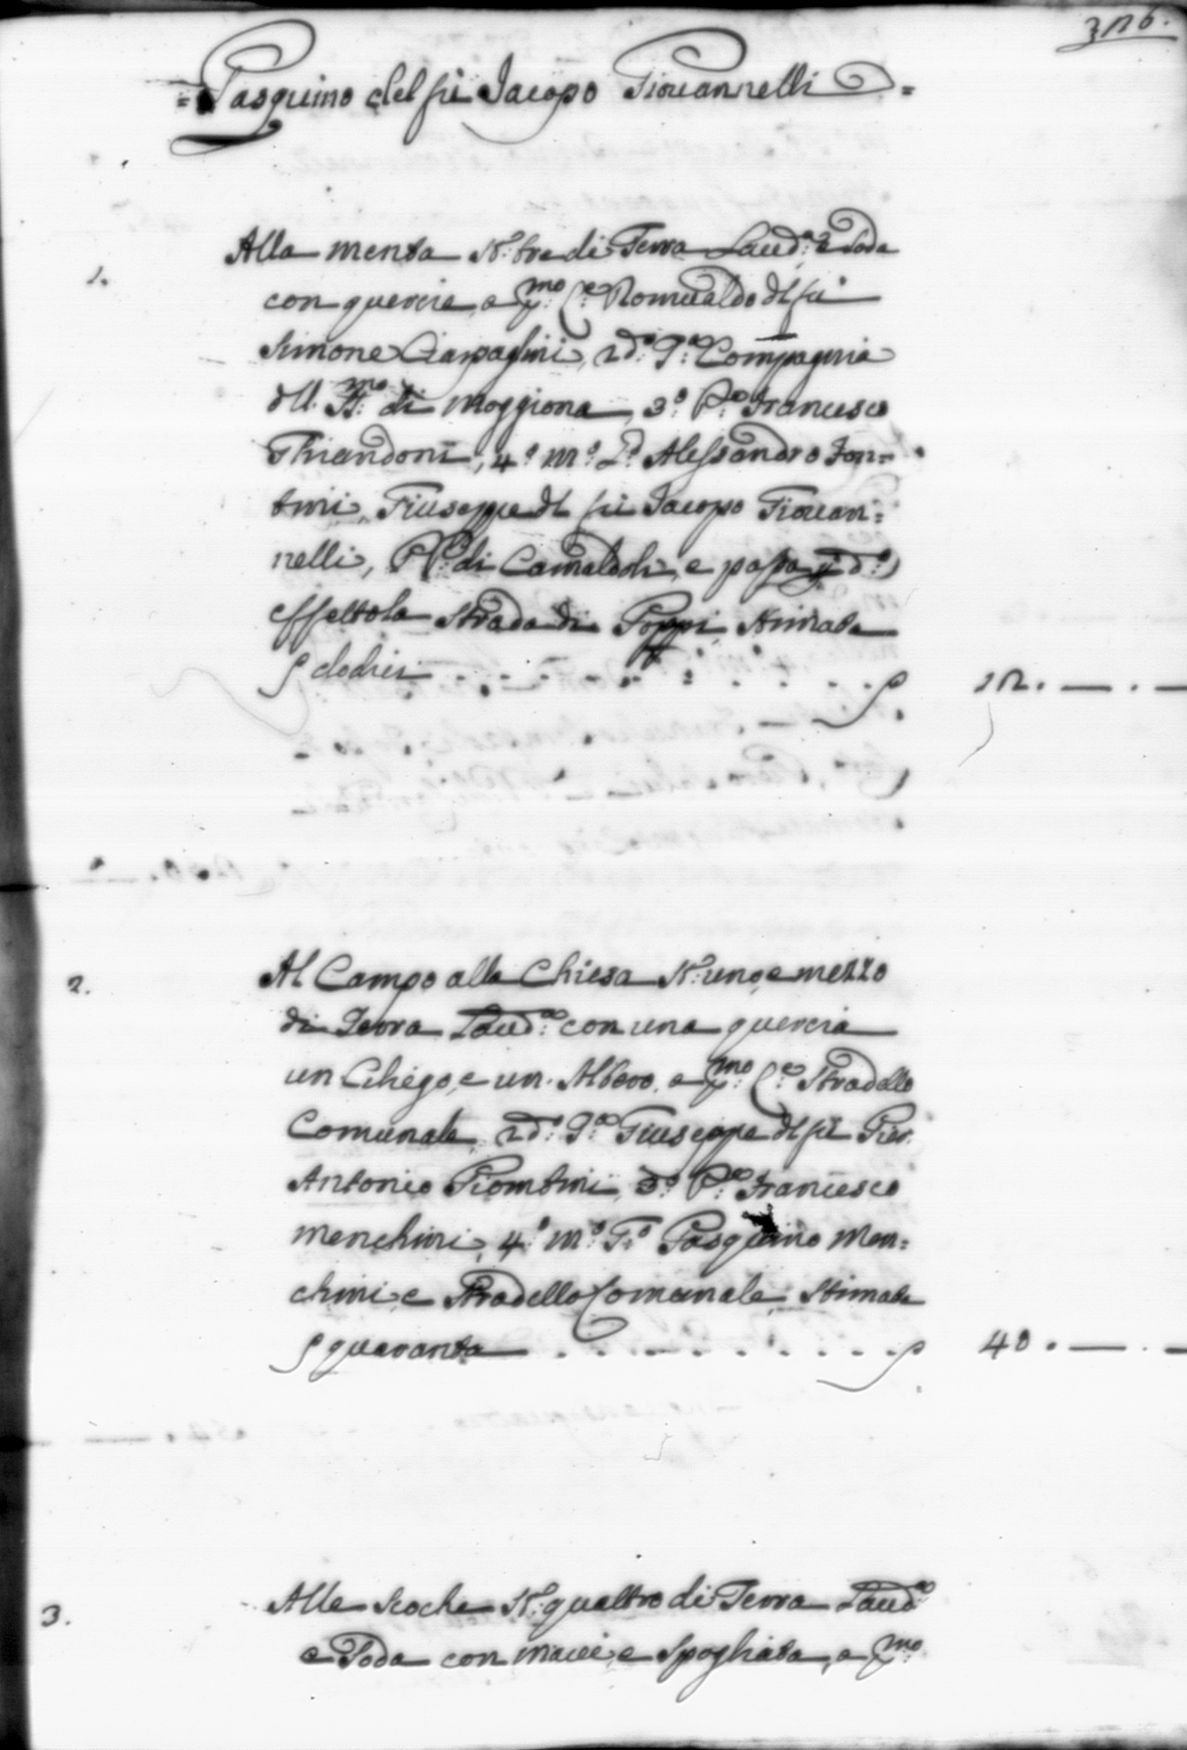 326.
= Pasquino del fù Jacopo Giovannelli =
1. Alla menta St: tre di Terra Laud:ª e Soda
con quercie, a p:mo C:e Romualdo dl fù
Simone Ciarpaglini, 2d:o 9:o Compagnia
dll. SS:mo di Moggiona, 3:o P:e Francesco
Ghiandoni, 4:o m:o D: Alessandro Fon=
tini, Giuseppe dl fù Jacopo Giovan=
nelli, PP: di Camaldoli, e passa p d:o
effetto la Strada di Poppi, Stimata
∫ dodici . . . . . . . . . ∫ 12. — . —
2. Al Campo alla Chiesa St: uno, e mezzo
di Terra Laud:ª con una quercia
un Ciliego, e un. Albero, a p:mo C:e Stradello
Comunale, 2d:o 9:o Giuseppe dl fù Pier.
Antonio Piontini, 3:o P:e Francesco
Menchini, 4:o m:o G:o Pasquino Men=
chini, e Stradello Comunale, Stimata
∫ quaranta . . . . . . . . . ∫ 40. — . —
3. Alle Scoche St: quattro di Terra Laud:ª
e Soda con Macie, e Spogliata, a p:mo